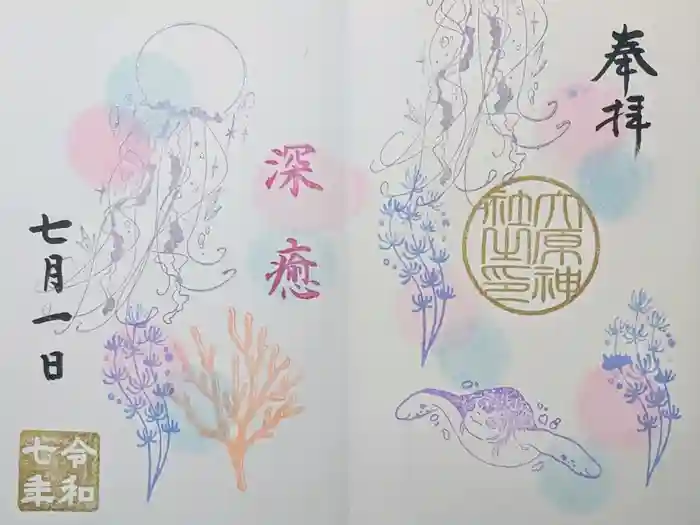 奉拝
六原神
社之印
深癒
七月一日
令和
七年